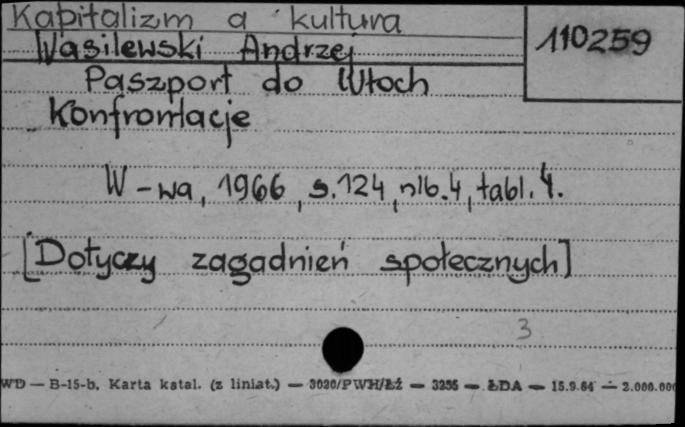 Kapitalizm a kultura
110259
Wasilewski Andrzej
Paszport do Włoch
Konfrontacje
W-wa, 1966, s.124, nlb.4, tabl. 4.
[Dotyczy zagadnień społecznych]
3
WD — B-15-b. Karta katal. (z liniat.) — 3020/PWH/ŁŻ — 3255 — ŁDA — 15.9.64 — 2.000.000